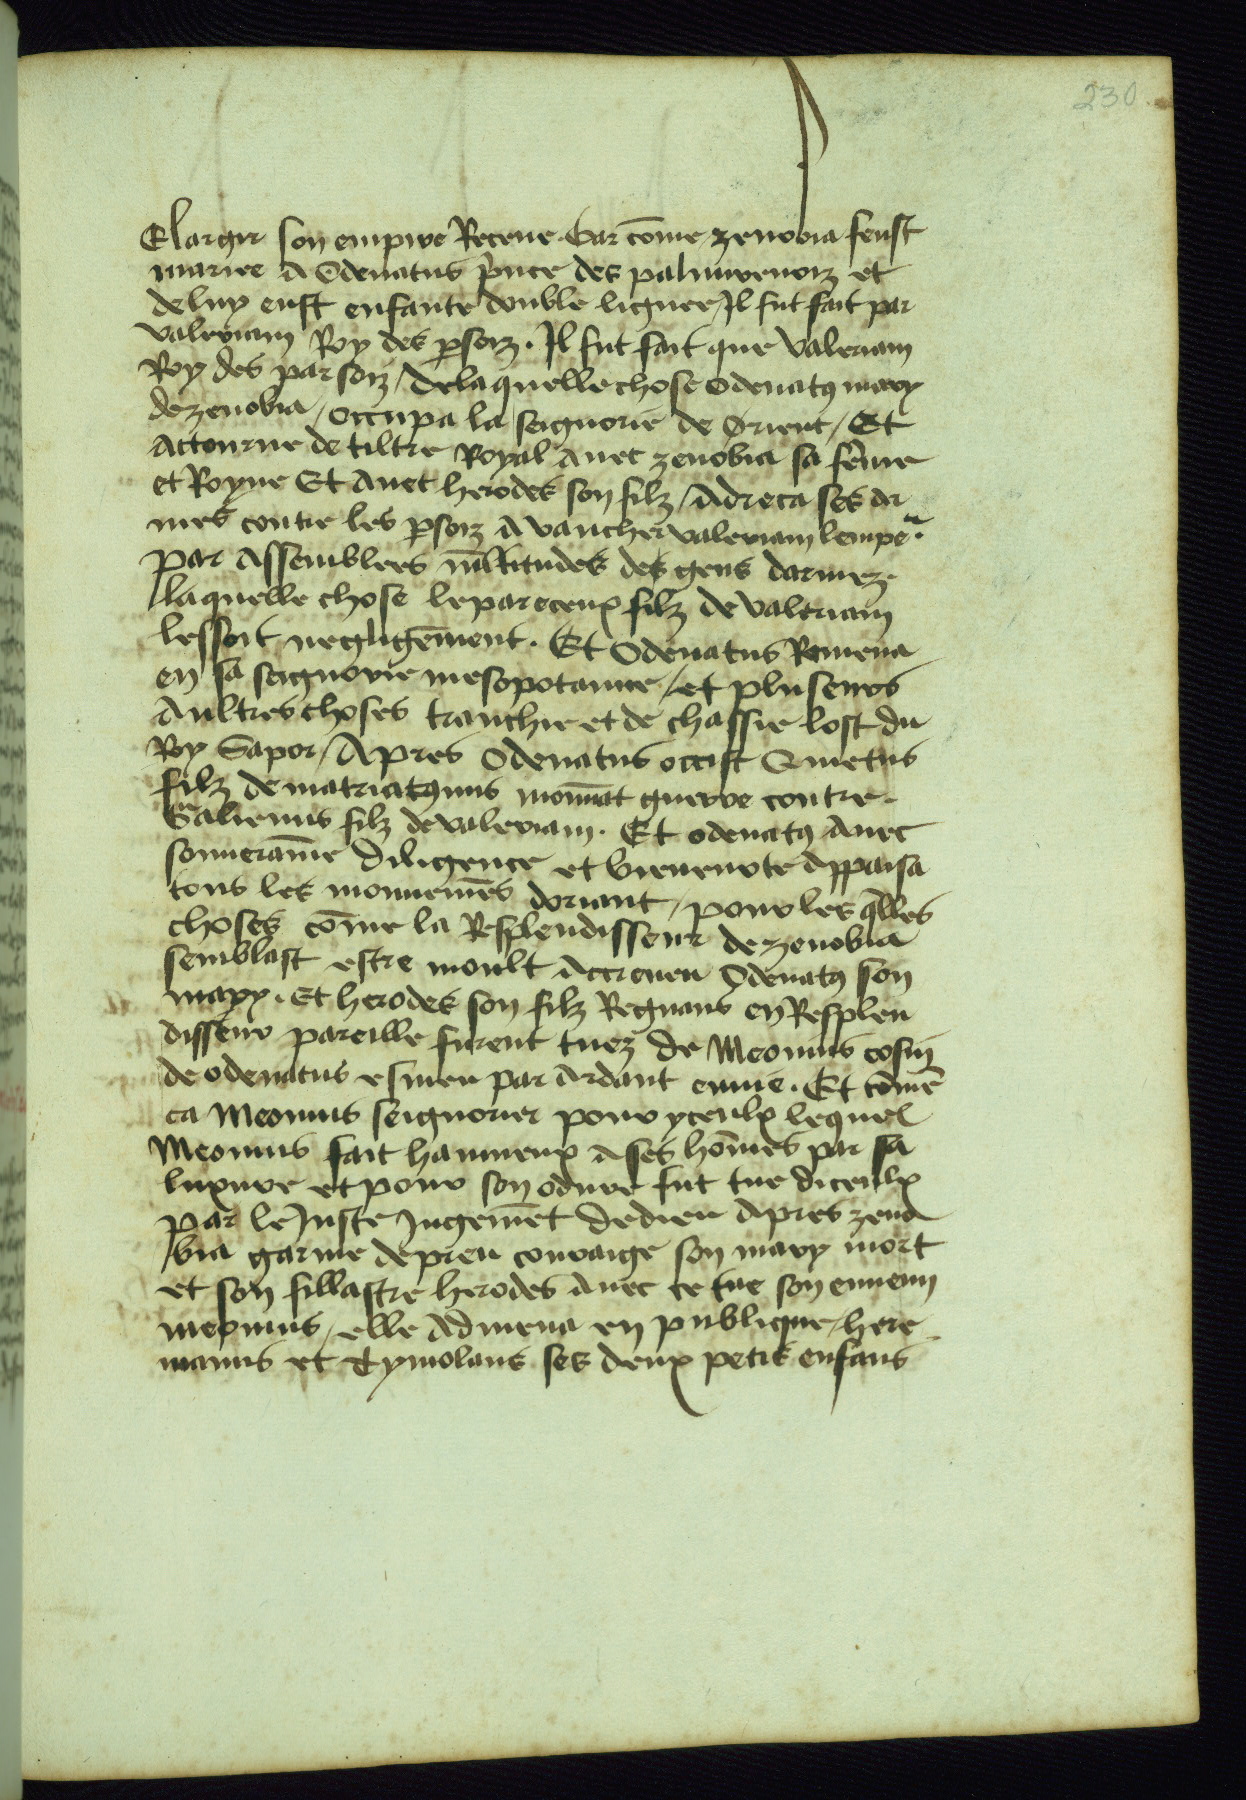 230
Elargir son empire Receue. Car cõme zenobia feust
mariee a Odenatus p̃nce des palmurenoiz et
de luy eust enfante double lignee / Il fut fait par
valeriam Roy des p̱soiz . Il fut fait que Valeriam
Roy des parsoiz / de laquelle chose odenatꝰ mary
de zenobia / occupa la seignorie de Orient / Et
attourne de tiltre Royal auec zenobia sa fẽme
et Royne Et auec herodes son filz / adreca ses ar
mes contre les p̱soiz a vancher valeriam lempeᵃ.
par assemblees ml̃titudes des gens darmez
laquelle chose le pareceux filz de Valeriam
lessoit negligẽment . Et Odenatus Remena
en sa seignorie mesopotamie / et pluseurs
aultres choses tranchie et de chassie lost du
Roy Sapor / Apres Odenatus occist Quietus
filz de matriatꝰnus mouuãt guerre contre
Galienus filz de valeriam . Et odenatꝰ auec
souueraĩne diligence et bieneurte appaisa
tous les mouuemẽs doriant / pour les q̃lles
choses cõme la Resplendisseur de zenobia
semblast estre moult accreuen Odenatꝰ son
mary . Et herodes son filz Regnans en Resplen
disseur pareille furent tuez de Meonius cosin
de odenatus esmeu par ardant enuie . Et cõmẽ
ca Meonius seignorier pour yceulx lequel
Meonius fait hayneux a ses hõmes par sa
luxure et pour son ordure fut tue diceulx
par le Juste Jugemẽt de dieu Apres zeno
bia garnie de preu couraige son mary mort
et son fillastre herodes auec ce tue son ennemi
meonius / elle admena en publique / here
manus et Tymolaus ses deux petis enfans